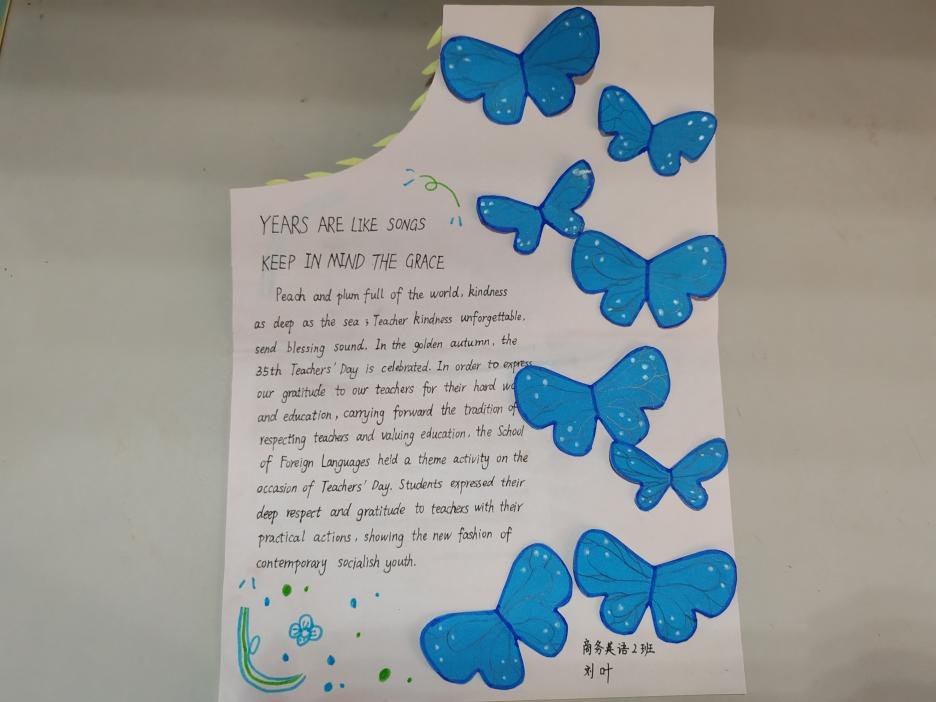 YEARS ARE LIKE SONGS
KEEP IN MIND THE GRACE
Peach and plum full of the world, kindness
as deep as the sea ; Teacher kindness unforgettable,
send blessing sound. In the golden autumn, the
35th Teachers' Day is celebrated. In order to express
our gratitude to our teachers for their hard
and education, carrying forward the tradition of
respecting teachers and valuing education, the School
of Foreign Languages held a theme activity on the
occasion of Teachers' Day. Students expressed their
deep respect and gratitude to teachers with their
practical actions, showing the new fashion of
contemporary socialish youth.
商务英语2班
刘叶